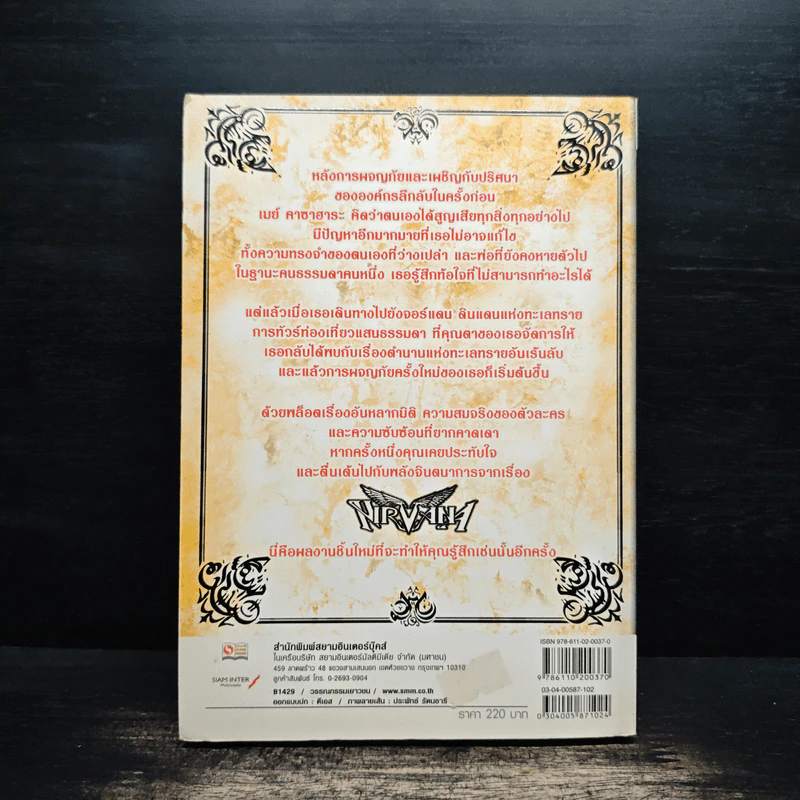 หลังการผจญภัยและเผชิญกับปริศนา
ขององค์กรลึกลับในครั้งก่อน
เมย์ คาซาฮาระ คิดว่าตนเองได้สูญเสียทุกสิ่งทุกอย่างไป
มีปัญหาอีกมากมายที่เธอไม่อาจแก้ไข
ทั้งความทรงจำของตนเองที่ว่างเปล่า และพ่อที่ยังคงหายตัวไป
ในฐานะคนธรรมดาคนหนึ่ง เธอรู้สึกท้อใจที่ไม่สามารถทำอะไรได้
แต่แล้วเมื่อเธอเดินทางไปยังจอร์แดน ดินแดนแห่งทะเลทราย
การทัวร์ท่องเที่ยวแสนธรรมดา ที่คุณตาของเธอจัดการให้
เธอกลับได้พบกับเรื่องตำนานแห่งทะเลทรายอันเร้นลับ
และแล้วการผจญภัยครั้งใหม่ของเธอก็เริ่มต้นขึ้น
ด้วยพล็อตเรื่องอันหลากมิติ ความสมจริงของตัวละคร
และความซับซ้อนที่ยากคาดเดา
หากครั้งหนึ่งคุณเคยประทับใจ
และตื่นเต้นไปกับพลังจินตนาการจากเรื่อง
NIRVANA
นี่คือผลงานชิ้นใหม่ที่จะทำให้คุณรู้สึกเช่นนั้นอีกครั้ง
สำนักพิมพ์สยามอินเตอร์บุ๊คส์
ในเครือบริษัท สยามอินเตอร์มัลติมีเดีย จำกัด (มหาชน)
459 ลาดพร้าว 48 แขวงสามเสนนอก เขตห้วยขวาง กรุงเทพฯ 10310
ลูกค้าสัมพันธ์ โทร. 0-2693-0904
SIAM INTER
B1429 / วรรณกรรมเยาวชน / www.smm.co.th
ออกแบบปก : ดีเอส / ภาพลายเส้น : ประพัทธ์ รัตนธารี
ราคา 220 บาท
ISBN 978-611-02-0037-0
9 786110 200370
03-04-00587-102
0 304005 871024